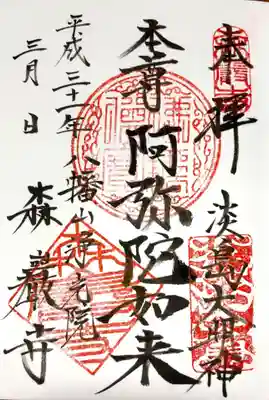 奉拝
淡島大明神
本尊阿弥陀如来
八幡山浄光院
森巖寺
平成三十一年
三月 日